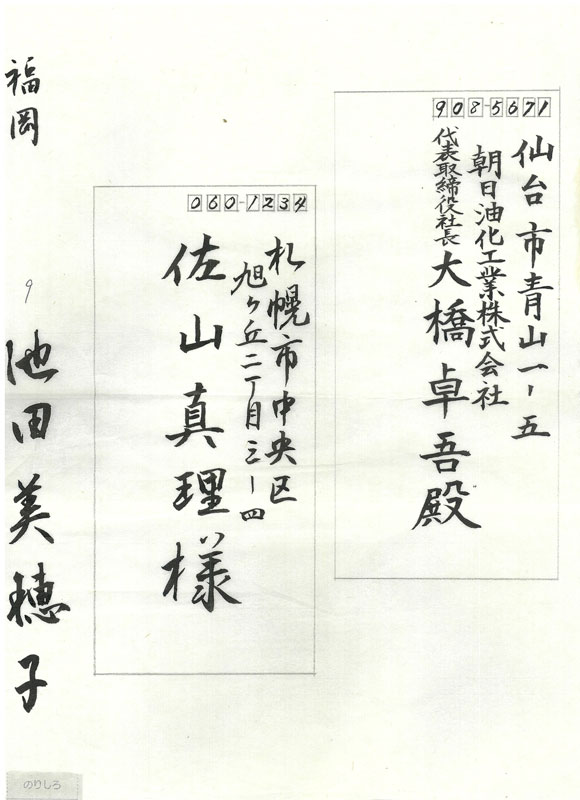 908-5671
仙台市青山一-五
朝日油化工業株式会社
代表取締役社長 大橋卓吾殿
060-1234
札幌市中央区
旭ヶ丘二丁目三-四
佐山真理様
福岡 池田美穂子
9
のりしろ